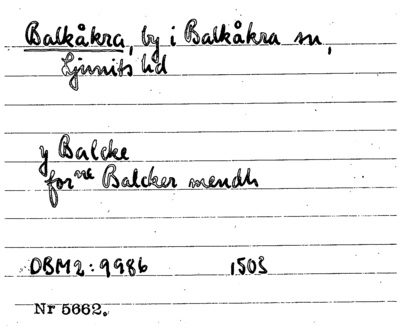 Balkåkra, by i Balkåkra sn,
Ljunits hd
y Balcke
for ne Balcker mendh
DBM2: 9986 1503
Nr 5662.